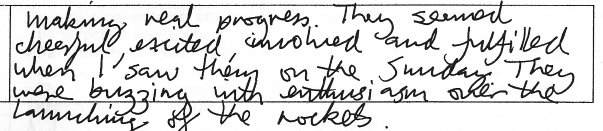 making real progress. They seemed
cheerful excited involved and fulfilled
when I saw them on the Sunday. They
were buzzing with enthusiasm over the
launching of the rockets.